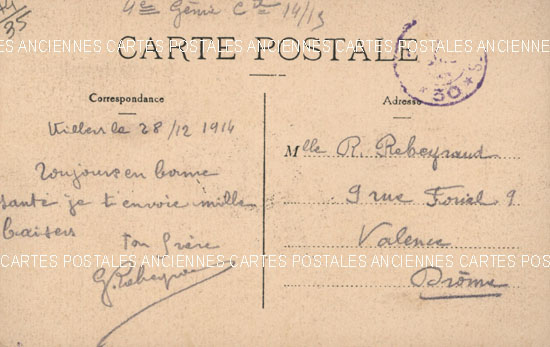 4e Génie Cie 14/13
35
CARTES POSTALES ANCIENNES CARTES POSTALES ANCIENNES CARTES POSTALES
CARTE POSTALE
30
Correspondance
Adresse
Villers le 28/12 1914
Toujours en bonne
santé je t'envoie mille
baisers
Ton frère
G. Rebeyraud
Mlle R. Rebeyraud
9 rue 9
Valence
Drôme
CARTES POSTALES ANCIENNES CARTES POSTALES ANCIENNES CARTES POSTALES